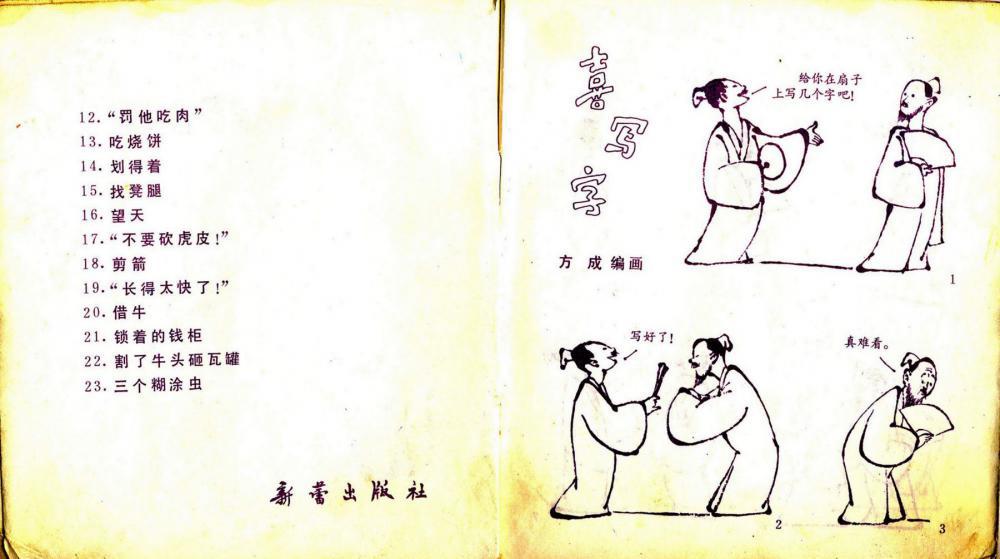 12.“罚他吃肉”
13.吃烧饼
14.划得着
15.找凳腿
16.望天
17.“不要砍虎皮!”
18.剪箭
19.“长得太快了!”
20.借牛
21.锁着的钱柜
22.割了牛头砸瓦罐
23.三个糊涂虫
新蕾出版社
喜写字
方成编画
给你在扇子
上写几个字吧!
1
写好了!
2
真难看。
3